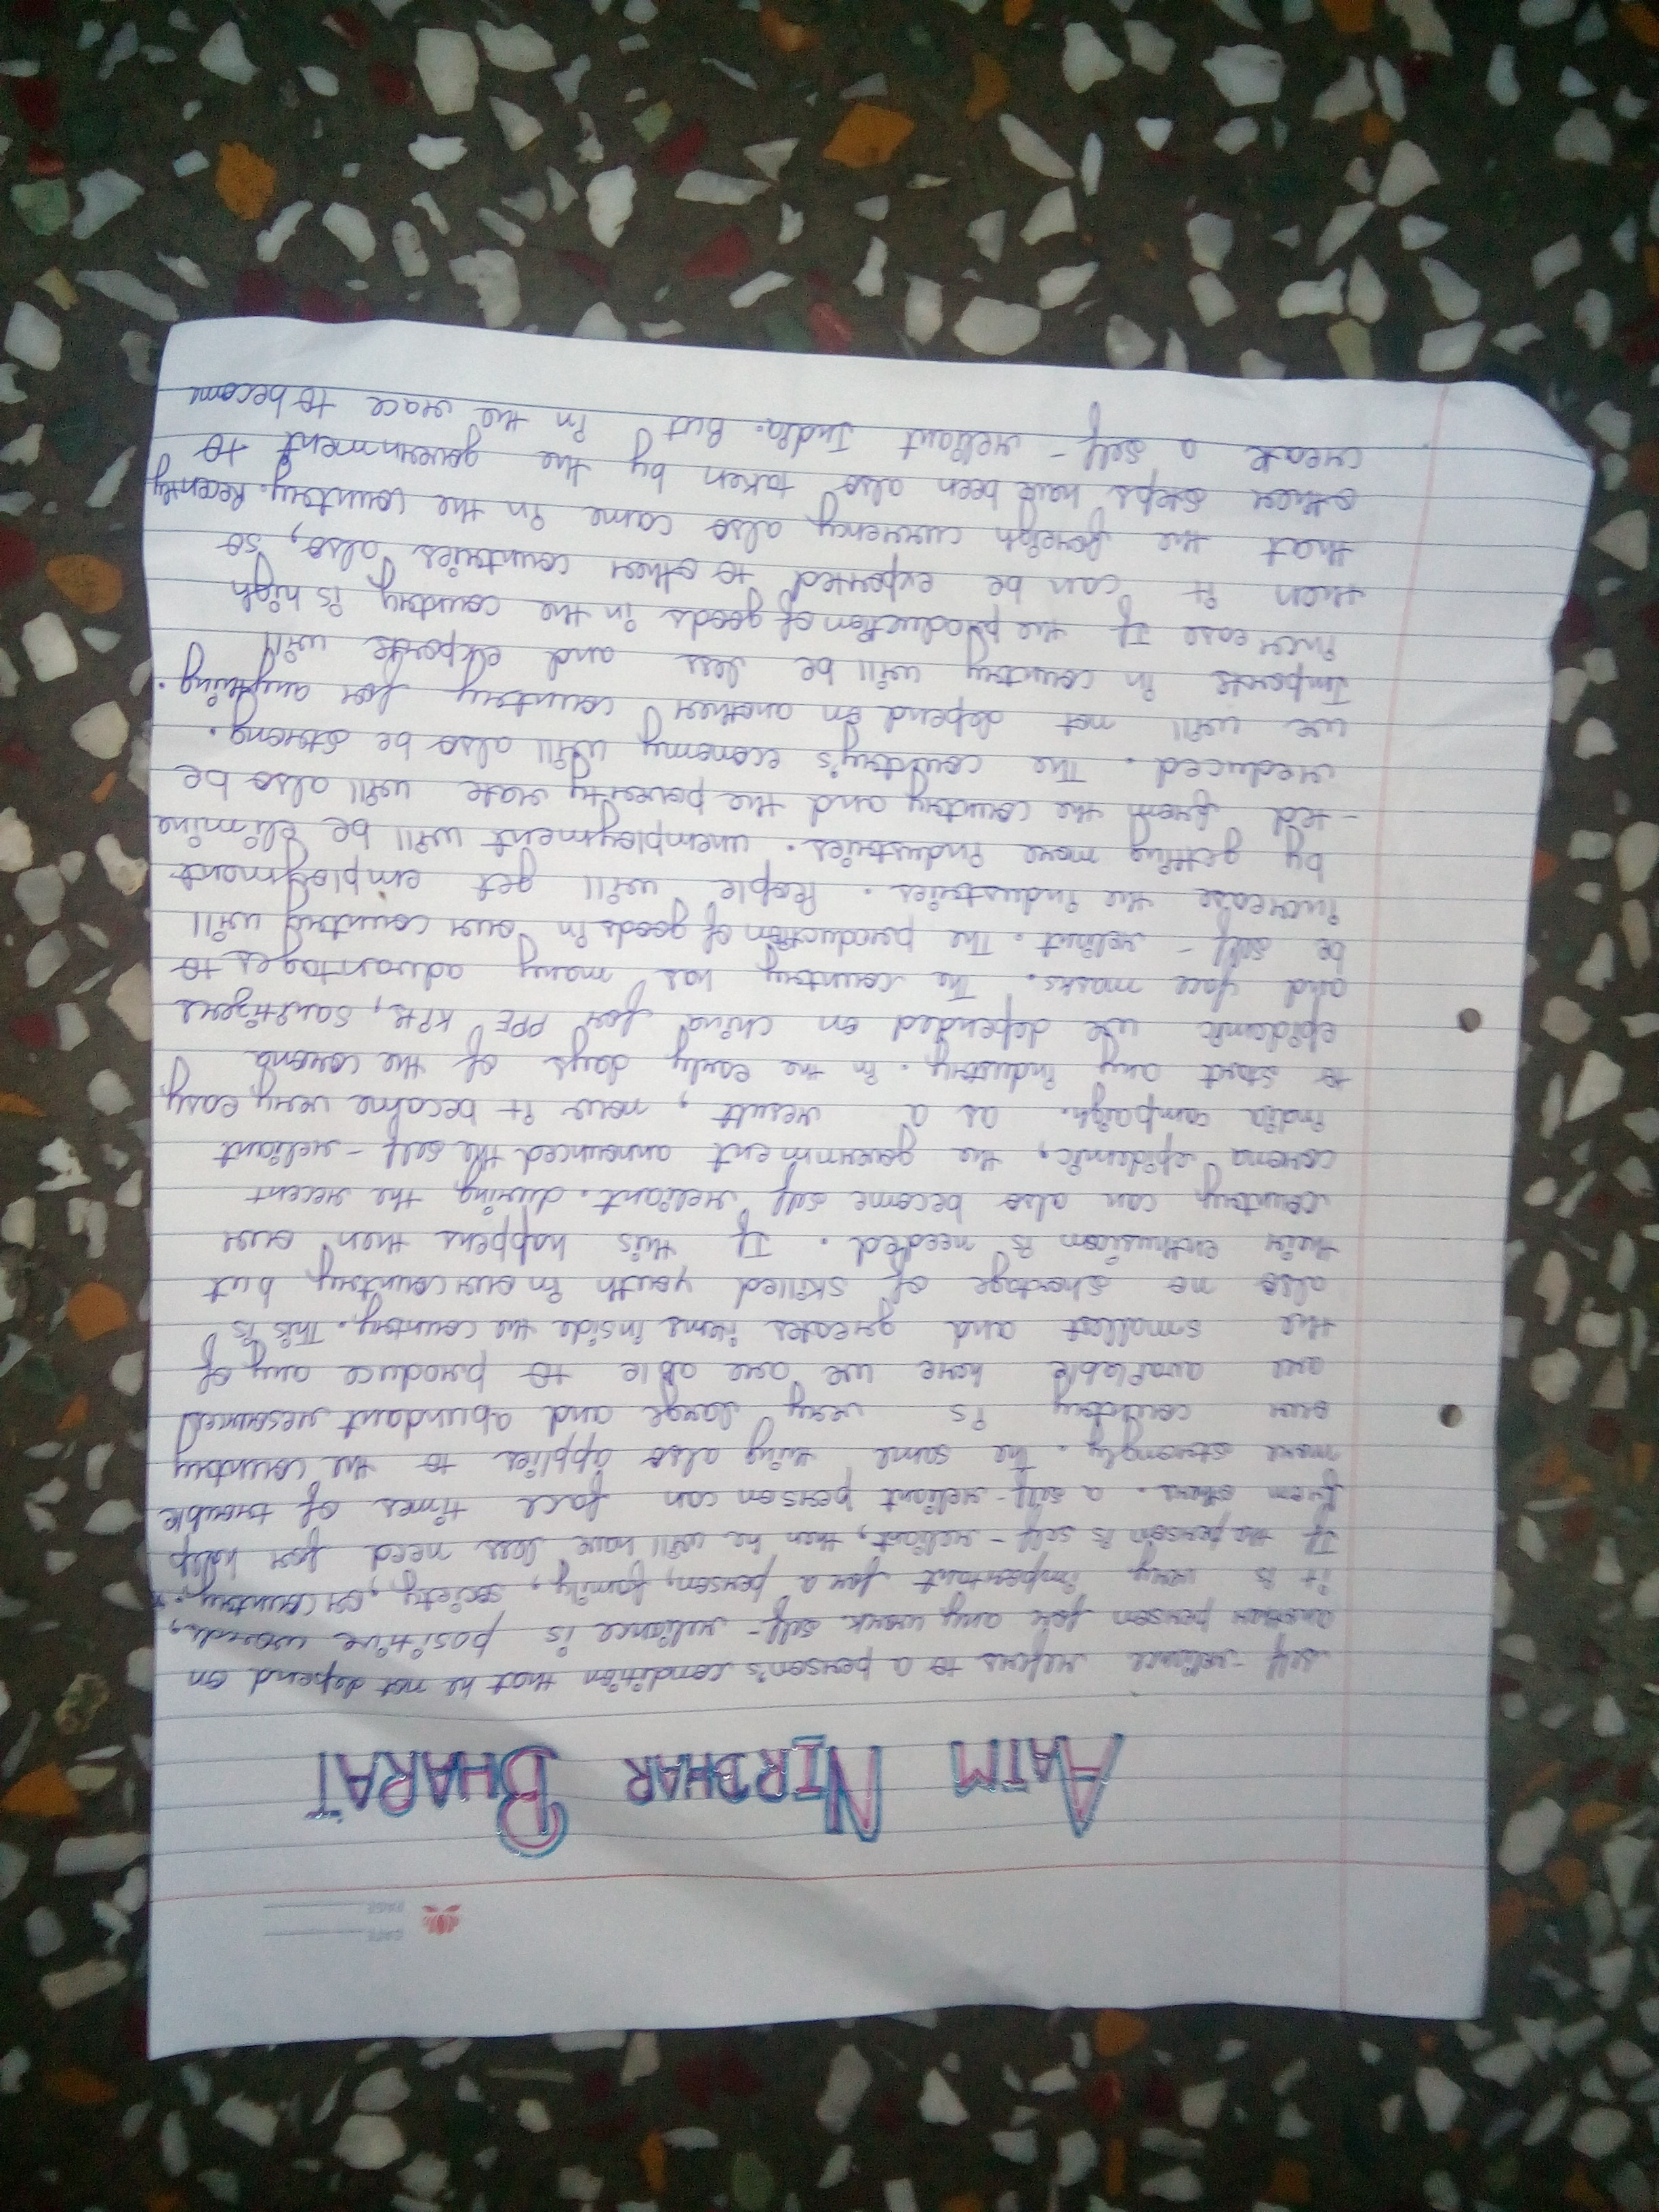 DATE
PAGE
AATM NIRBHAR BHARAT
self-reliance refers to a person's condition that he not depend on
another person for any work self-reliance is positive words,
it is very important for a person, family, society, or country.
If the person is self-reliant, then he will have less need for help
from others. a self-reliant person can face times of trouble
more strongly. The same thing also applies to the country
our country is very large and abundant resources
are available here we are able to produce any of
the smallest and greates items inside the country. This is
also no shortage of skilled youth in our country, but
their enthusiasm is needed. If this happens then our
country can also become self reliant. during the recent
corona epidemic, the government announced the self-reliant
india campaign. as a result, now it became very easy
to start any industry. in the early days of the corona
epidemic we depended on china for PPE kits, sanitizers
and face masks. The country has many advantages to
be self-relinat. The production of goods in our country will
increase the industries. People will get employment
by getting more industries. unemployment will be elimina
-ted from the country and the poverty rate will also be
reduced. The country's economy will also be strong.
we will not depend on another country for anything.
Imports in country will be less and exports will
increase If the production of goods in the country is high
then it can be exported to other countries also, so
that the foreign currency also came in the country. Recently
other steps have been also taken by the government to
create a self-reliant India. But in the race to become